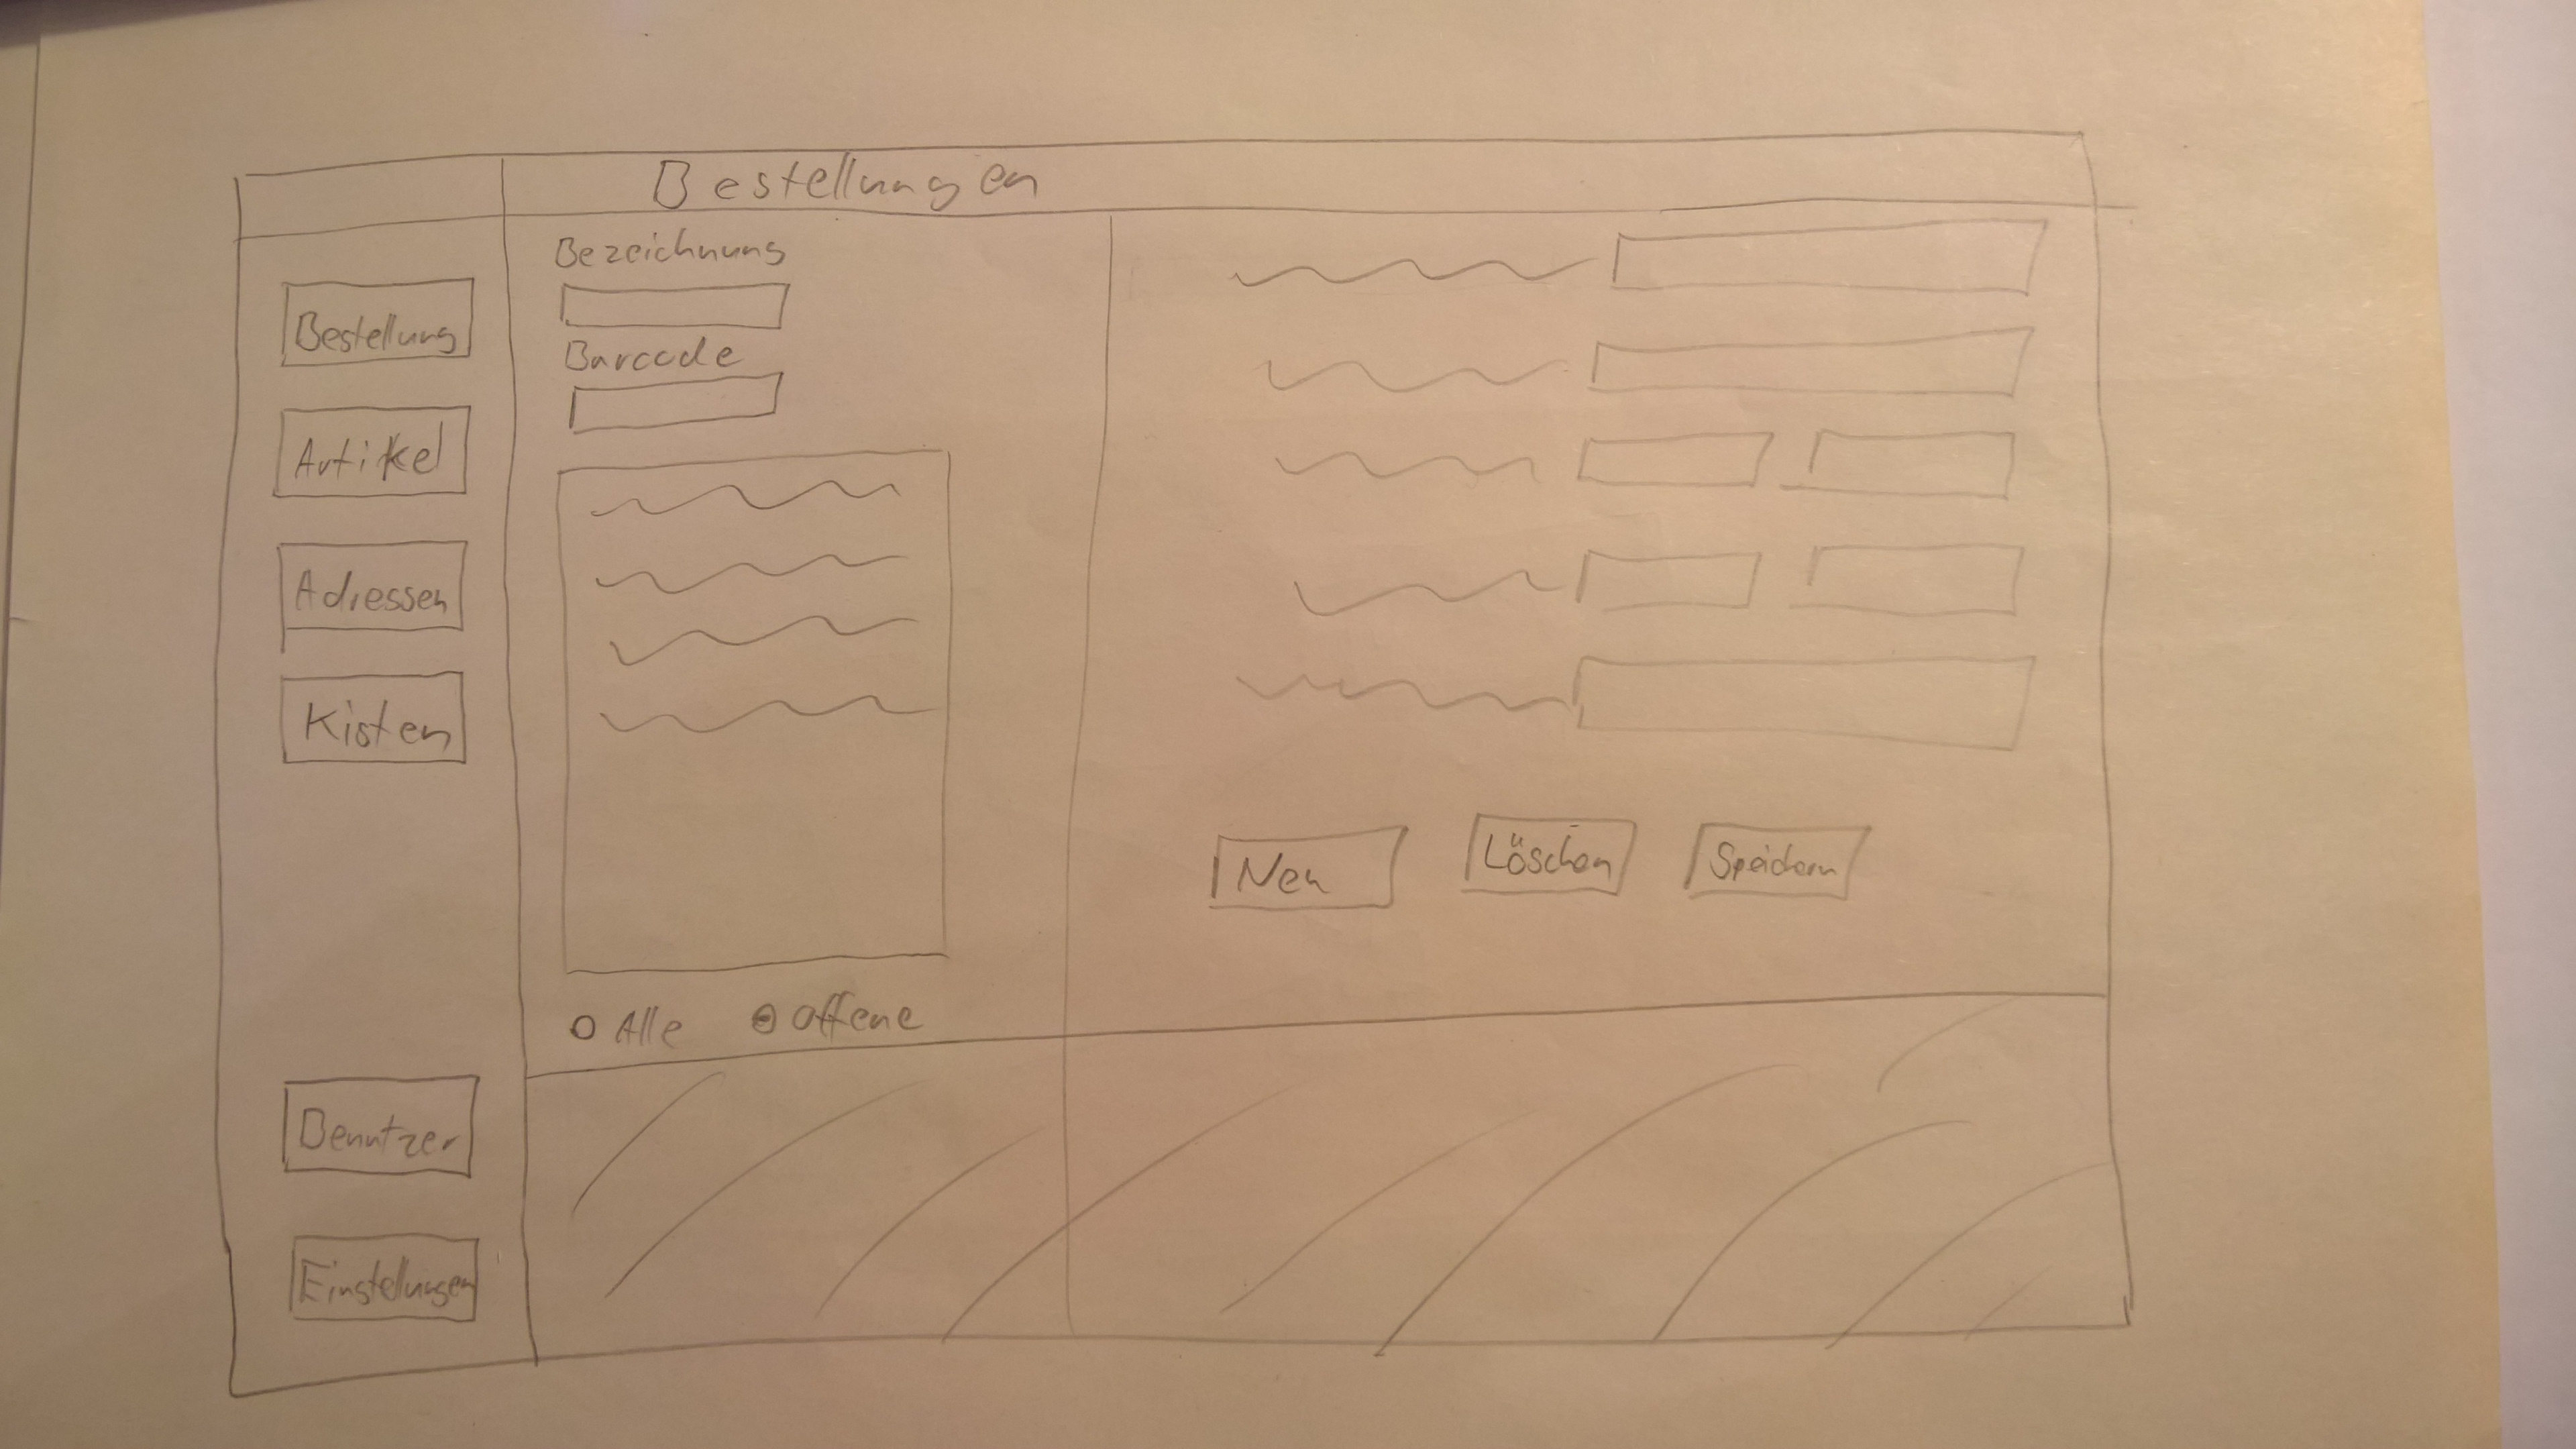 Bestellungen
Bestellung
Artikel
Adressen
Kisten
Benutzer
Einstellungen
Bezeichnung
Barcode
Alle
Offene
Neu
Löschen
Speichern